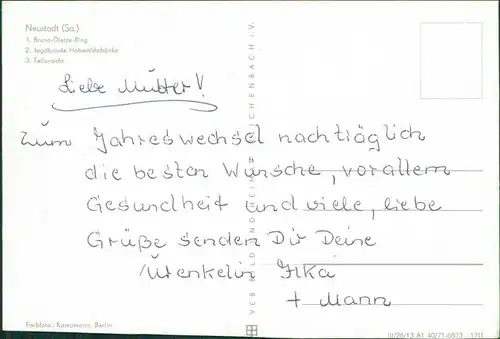 Neustadt (Sa.)
1. Bruno-Dietze-Ring
2. Jagdbaude Hohwaldschänke
3. Teilansicht
Liebe Mutter!
Zum Jahreswechsel nachträglich
die besten Wünsche, vor allem
Gesundheit und viele, liebe
Grüße senden Dir Deine
Urenkelin Ilka
+ Mann
VEB BILD UND HEIMAT REICHENBACH i.V.
Farbfotos: Kampmann, Berlin
III/26/13 A1 40/71 1711